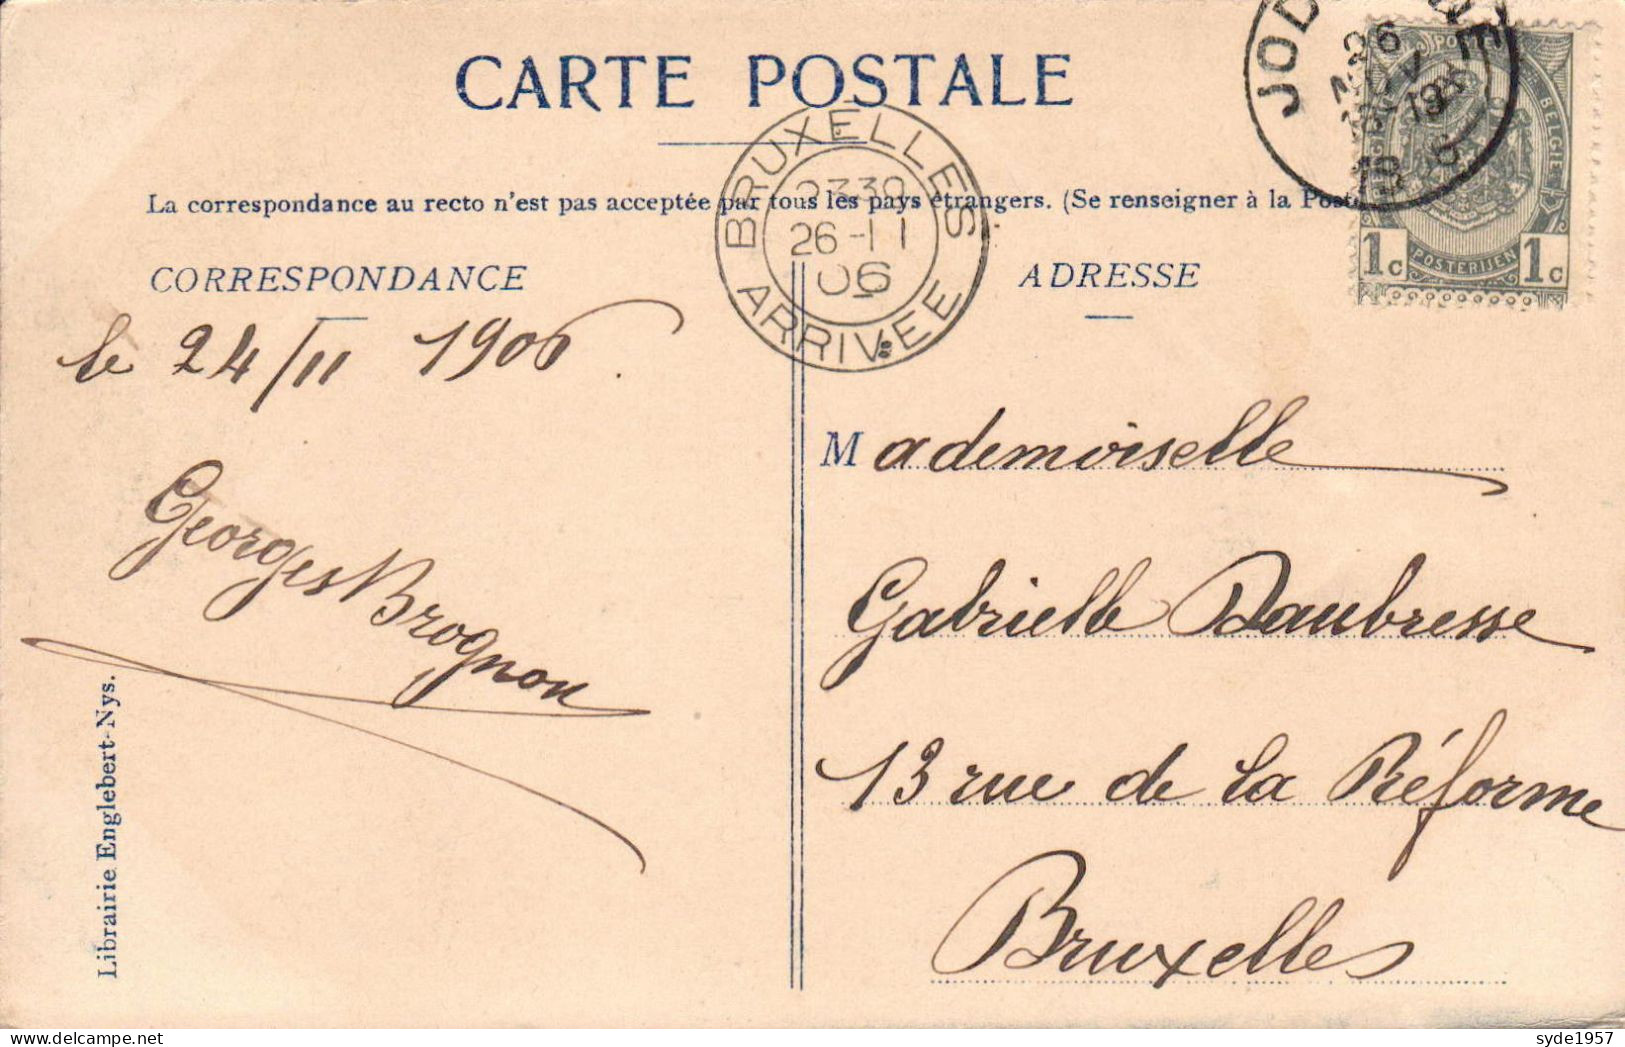 CARTE POSTALE
La correspondance au recto n'est pas acceptée par tous les pays étrangers. (Se renseigner à la Poste
CORRESPONDANCE
ADRESSE
BRUXELLES
2330
26-11
06
ARRIVÉE
26
1c POSTERIJEN 1c
BELGIE
le 24/11 1906.
Georges Brognon
Mademoiselle
Gabrielle Daubresse
13 rue de la Réforme
Bruxelles
Librairie Englebert-Nys.
syde1957